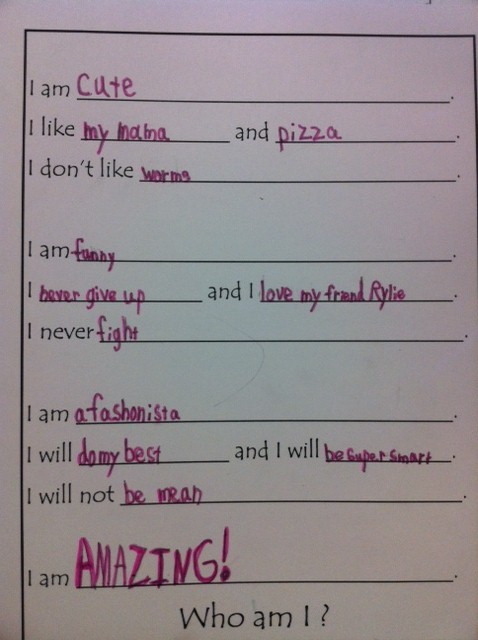 I am Cute.
I like my mama and pizza.
I don't like worms.
I am funny.
I never give up and I love my friend Rylie.
I never fight.
I am a fashonista.
I will do my best and I will be super smart.
I will not be mean.
I am AMAZING!.
Who am I?